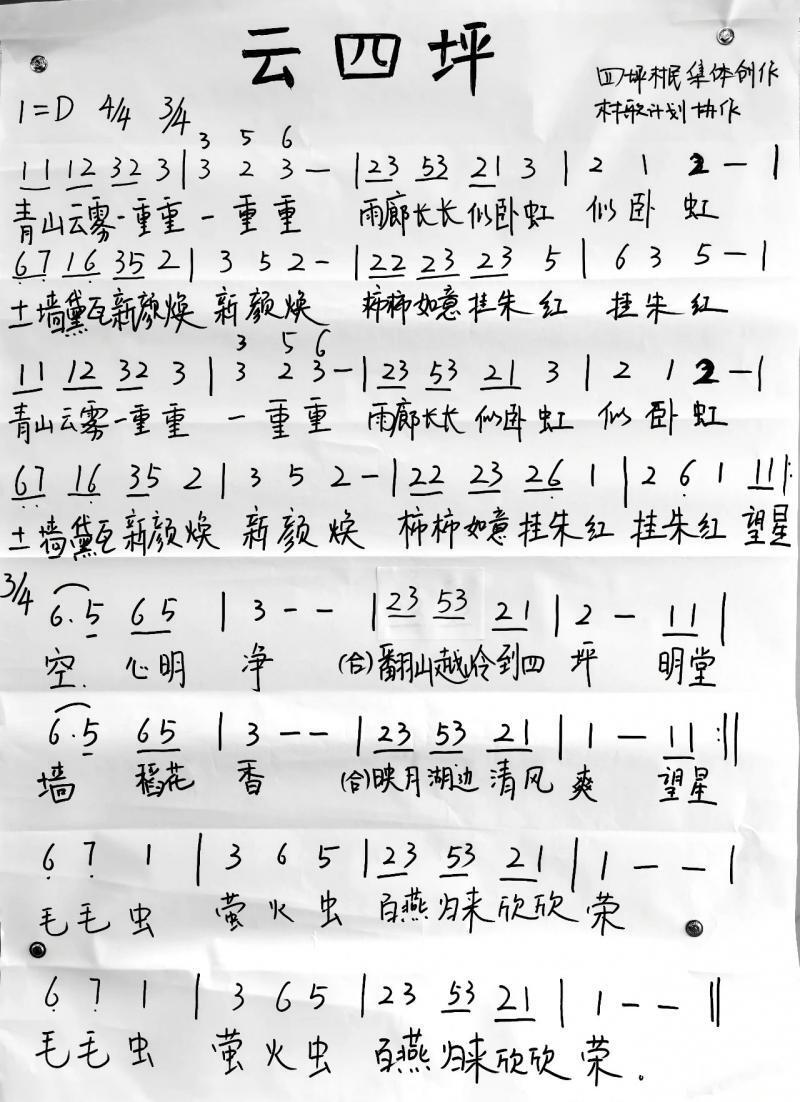 云四坪
四坪村民集体创作
村歌计划协作
1=D 4/4 3/4
3 5 6
11 12 32 3 | 3 2 3 – | 23 53 21 3 | 2 1 2 – |
青山云雾一重重 一重重 雨廊长长似卧虹 似卧虹
67 16 35 2 | 3 5 2 – | 22 23 23 5 | 6 3 5 – |
土墙黛瓦新颜焕 新颜焕 柿柿如意挂朱红 挂朱红
3 5 6
11 12 32 3 | 3 2 3 – | 23 53 21 3 | 2 1 2 – |
青山云雾一重重 一重重 雨廊长长似卧虹 似卧虹
67 16 35 2 | 3 5 2 – | 22 23 26 1 | 2 6 1 11 |:
土墙黛瓦新颜焕 新颜焕 柿柿如意挂朱红 挂朱红 望星
3/4 6.5 65 | 3 – – | 23 53 21 | 2 – 11 |
空. 心明 净 (合)翻山越岭到四 坪 明堂
6.5 65 | 3 – – | 23 53 21 | 1 – 11 :||
墙 稻花 香 (合)映月湖边 清风 爽 望星
6 7 1 | 3 6 5 | 23 53 21 | 1 – – |
毛毛虫 萤火虫 百燕归来欣欣荣
6 7 1 | 3 6 5 | 23 53 21 | 1 – – ||
毛毛虫 萤火虫 百燕归来欣欣荣.